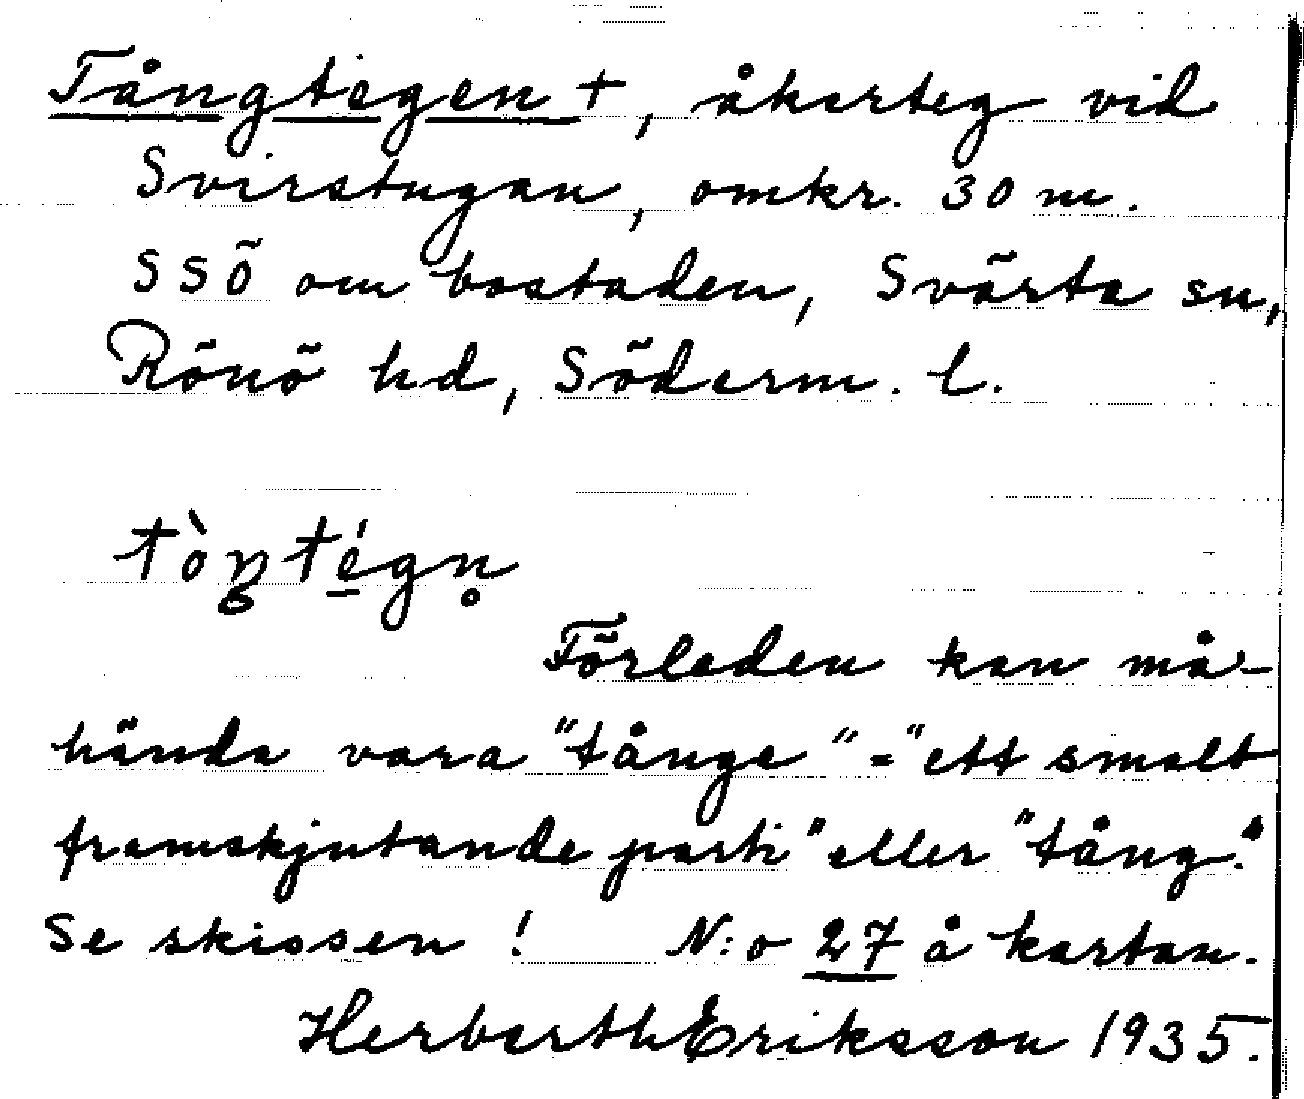 Tångtegen +, åkerteg vid
Svirstugan, omkr. 30 m.
SSÖ om bostaden, Svärta sn,
Rönö hd, Söderm. l.
tòŋtégn̥
Förleden kan må-
hända vara "tånge" = "ett smalt
framskjutande parti" eller "tång".
Se skissen! N:o 27 å kartan.
Herberth Eriksson 1935.